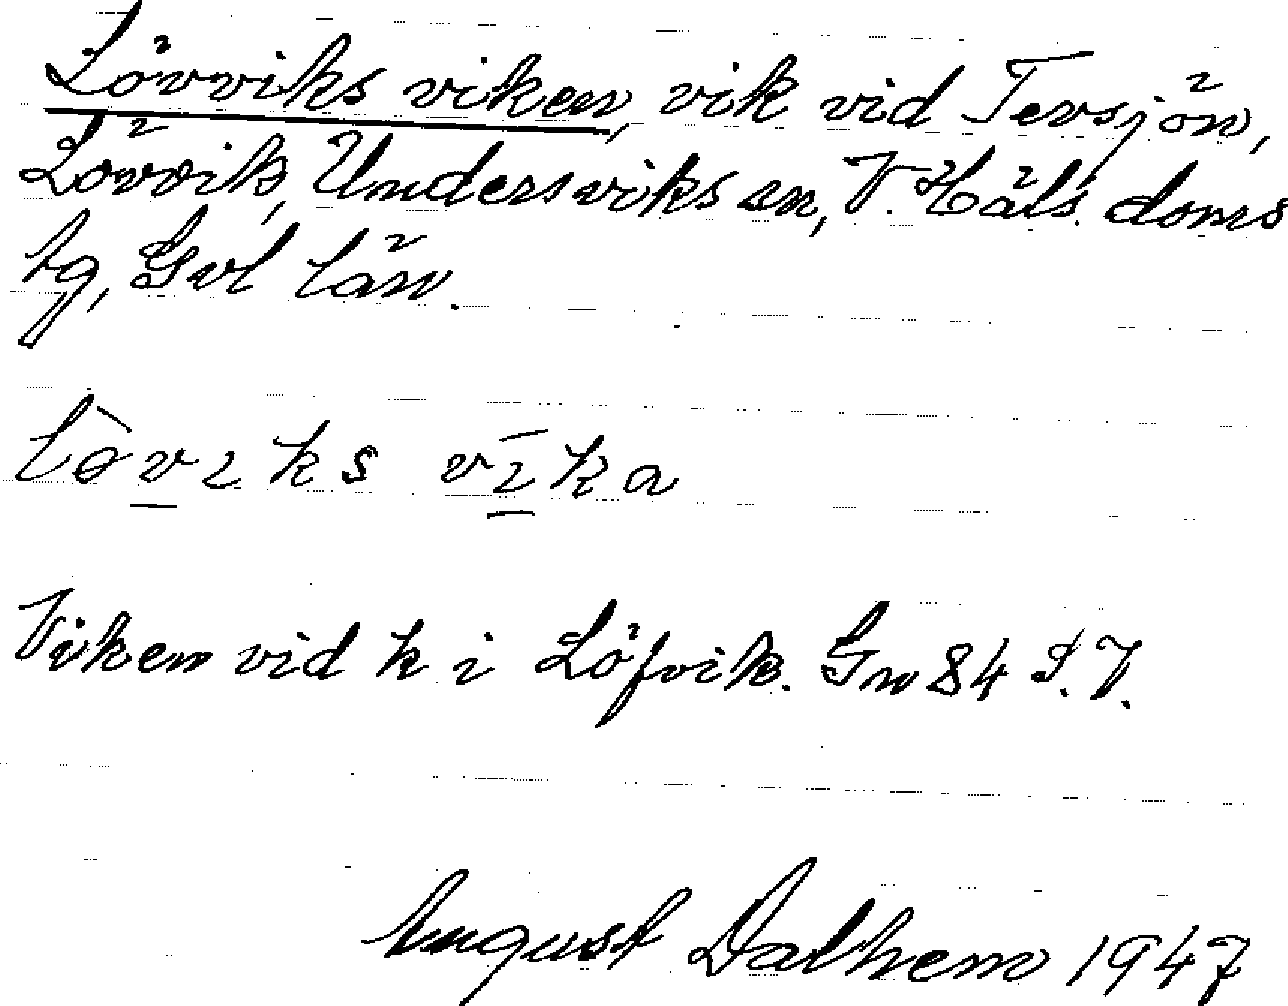 Lövviks viken, vik vid Tevsjön,
Lövvik, Undersviks sn, V. Häls. doms
tg, Gvl län.
Viken vid k i Löfvik. Gn 84 S.V.
August Dalhem 1947